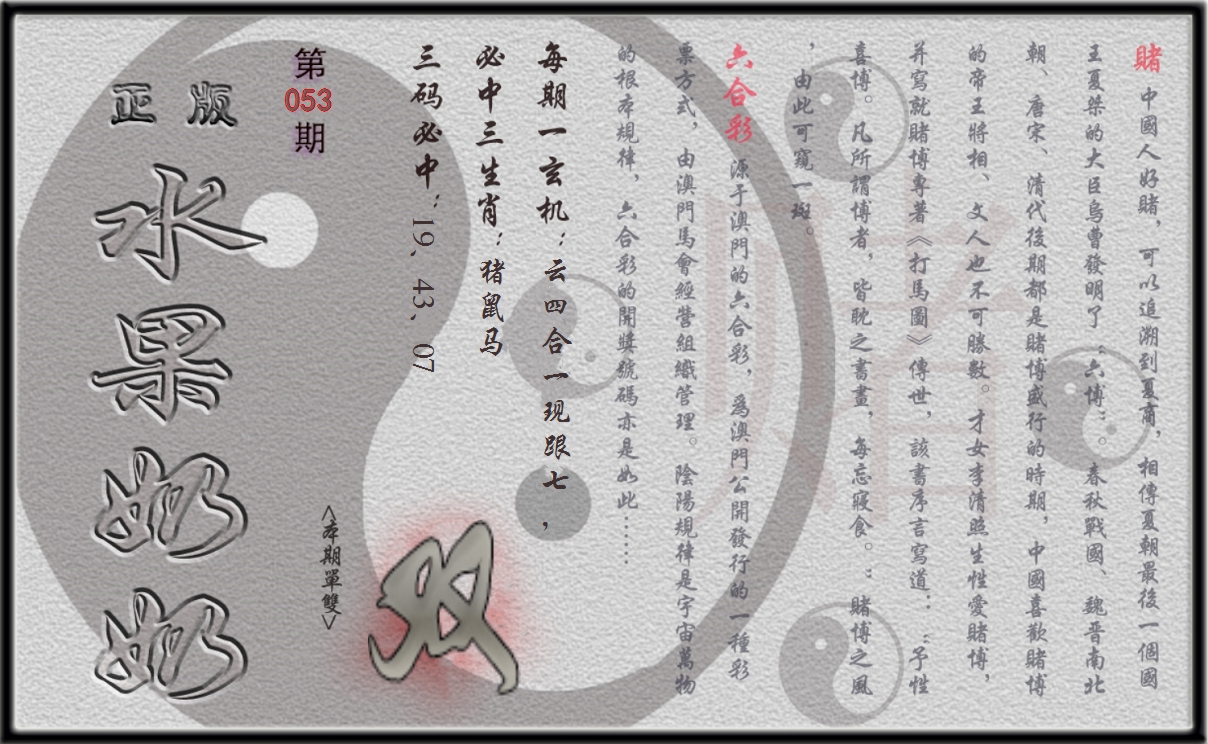 賭 中國人好賭，可以追溯到夏商，相傳夏朝最後一個國
王夏桀的大臣烏曹發明了“六博”。春秋戰國、魏晉南北
朝、唐宋、清代後期都是賭博盛行的時期，中國喜歡賭博
的帝王將相、文人也不可勝數。才女李清照生性愛賭博，
并寫就賭博專著《打馬圖》傳世，該書序言寫道：“予性
喜博。凡所謂博者，皆眈之書畫，每忘寢食。：賭博之風
，由此可窺一斑。
六合彩 源于澳門的六合彩，爲澳門公開發行的一種彩
票方式，由澳門馬會經營組織管理。陰陽規律是宇宙萬物
的根本規律，六合彩的開獎號碼亦是如此……
每期一玄机：云四合一现跟七，
必中三生肖：猪鼠马
三码必中：19、43、07
双
<本期單雙>
第
053
期
正版
水果奶奶
赌